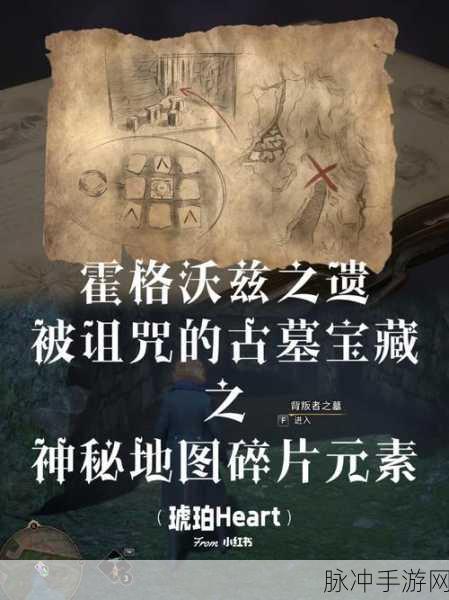 霍格沃兹之遗
被诅咒的古墓宝藏
之
背叛者之墓
F 进入
神秘地图碎片元素
（琥珀Heart）
From 小红书
3
脉冲手游网